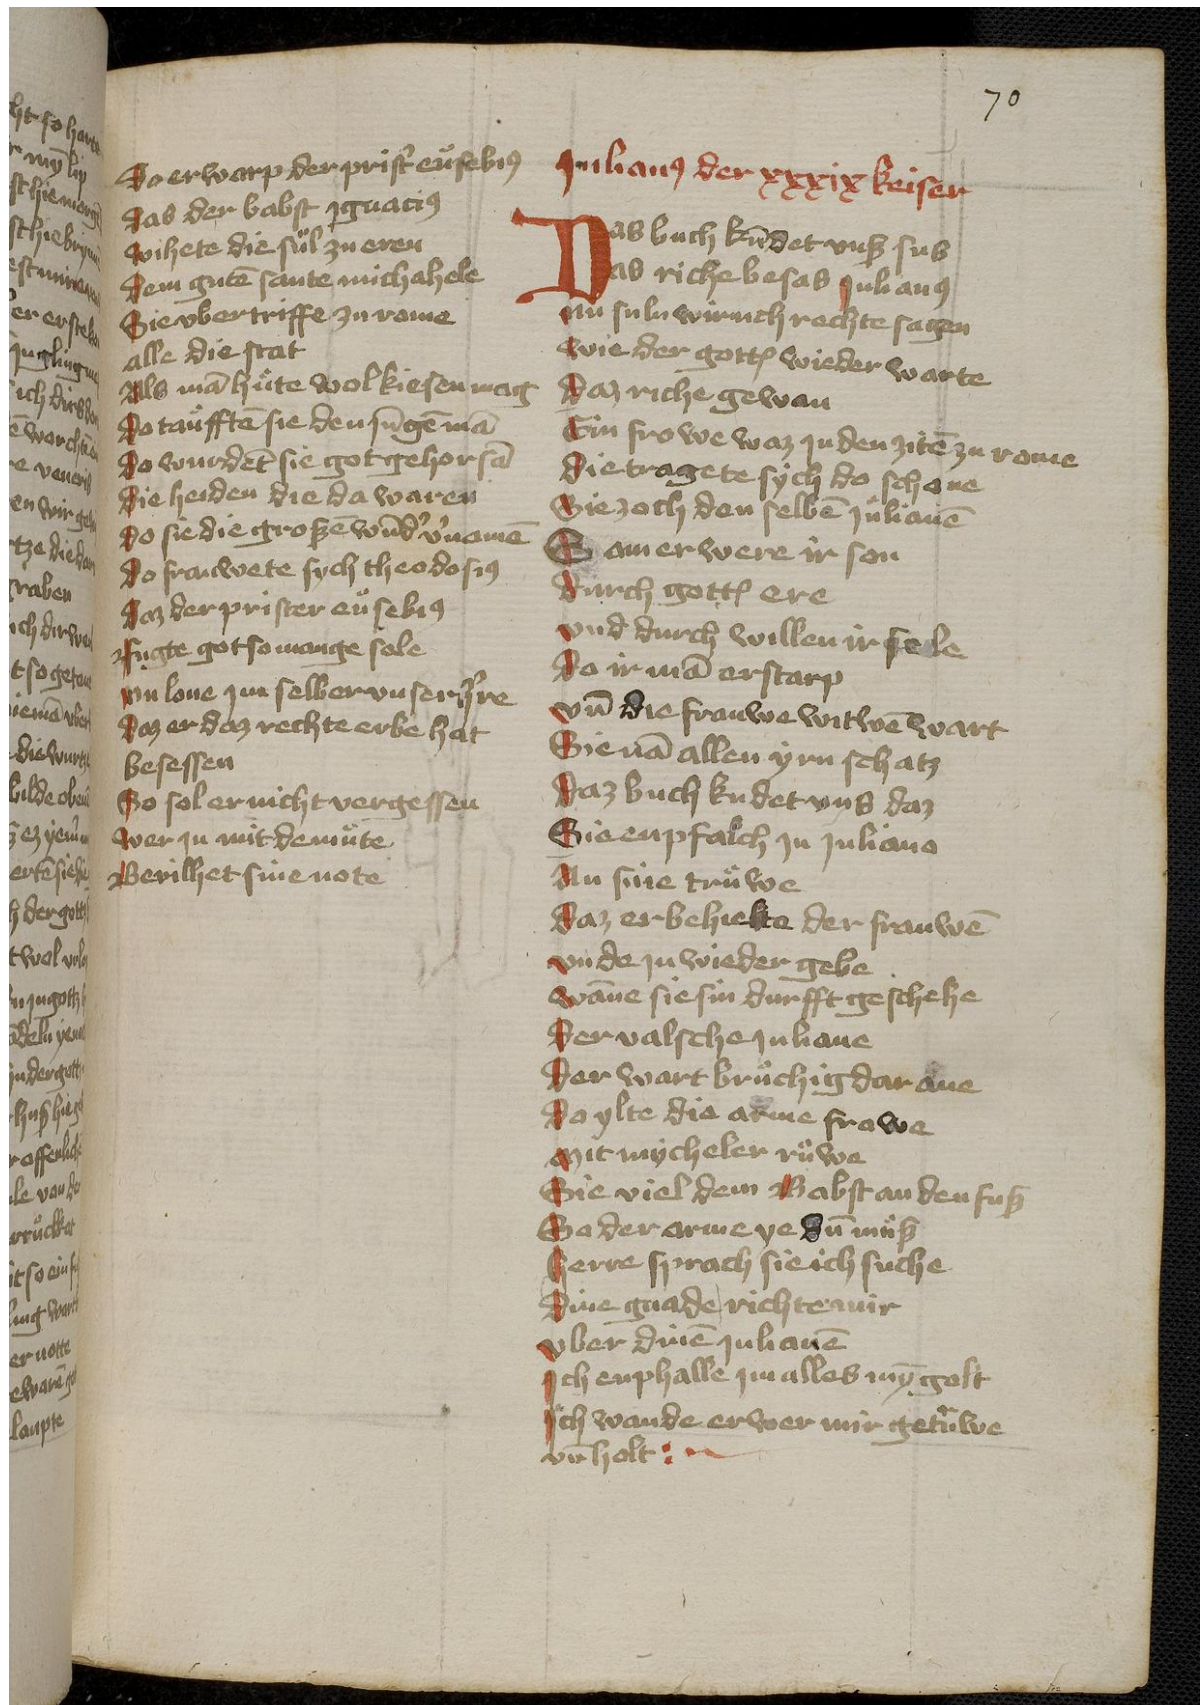 70
Do erwarp der prist̛ eůsebiꝰ
das der babst Jgnaciꝰ
wihete die sůl zu eren
dem gutē sante michahele
Sie vbertriffe zu rome
alle die stat
Als mā hůte wol kiesen mag
do taůfftē sie den jūgē mā
do wurdēt sie got gehorsā
die heiden die da waren
do sie die großē wūd̛ v̛namē
do frauwete sych theodosiꝰ
daz der prister eůsebiꝰ
Fugte got so mange sele
nu lone jm selber vnser h̛re
daz er daz rechte erbe hat
besessen
So sol er nicht vergessen
wer jn mit demůte
Bevilhet sine note
Julianꝰ der xxxix keiser
Das buch kūdet vnß sus
das riche besas Julianꝰ
nu suln wir uch rechte sagen
wie der gottꝭ wieder warte
daz riche gewan
Ein frowe waz jn den zitē zu rome
die tragete sych do schone
Sie zoch den selbē jůlianē
Sam er were ir son
durch gottꝭ ere
vnd durch willen ir sele
do ir mā erstarp
vn̄ die frauwe witwē wart
Sie nā allen yrn schatz
daz buch kudet vns daz
Sie enpfalch jn juliano
An sine trůwe
daz er behielte der frauwē
vnde jn wieder gebe
wāne sie sin durfft geschehe
der valsche juliane
der wart brůchig dar ane
do ylte die arme frowe
mit mycheler růwe
Sie viel dem Babst an den fuß
So der arme ye dūn můß
herre sprach sie ich suche
dine gnade richte mir
vber dinē julianē
Ich enphalle jm alles mȳ golt
Ich wande er wer mir getrůwe
vn̄ holt :